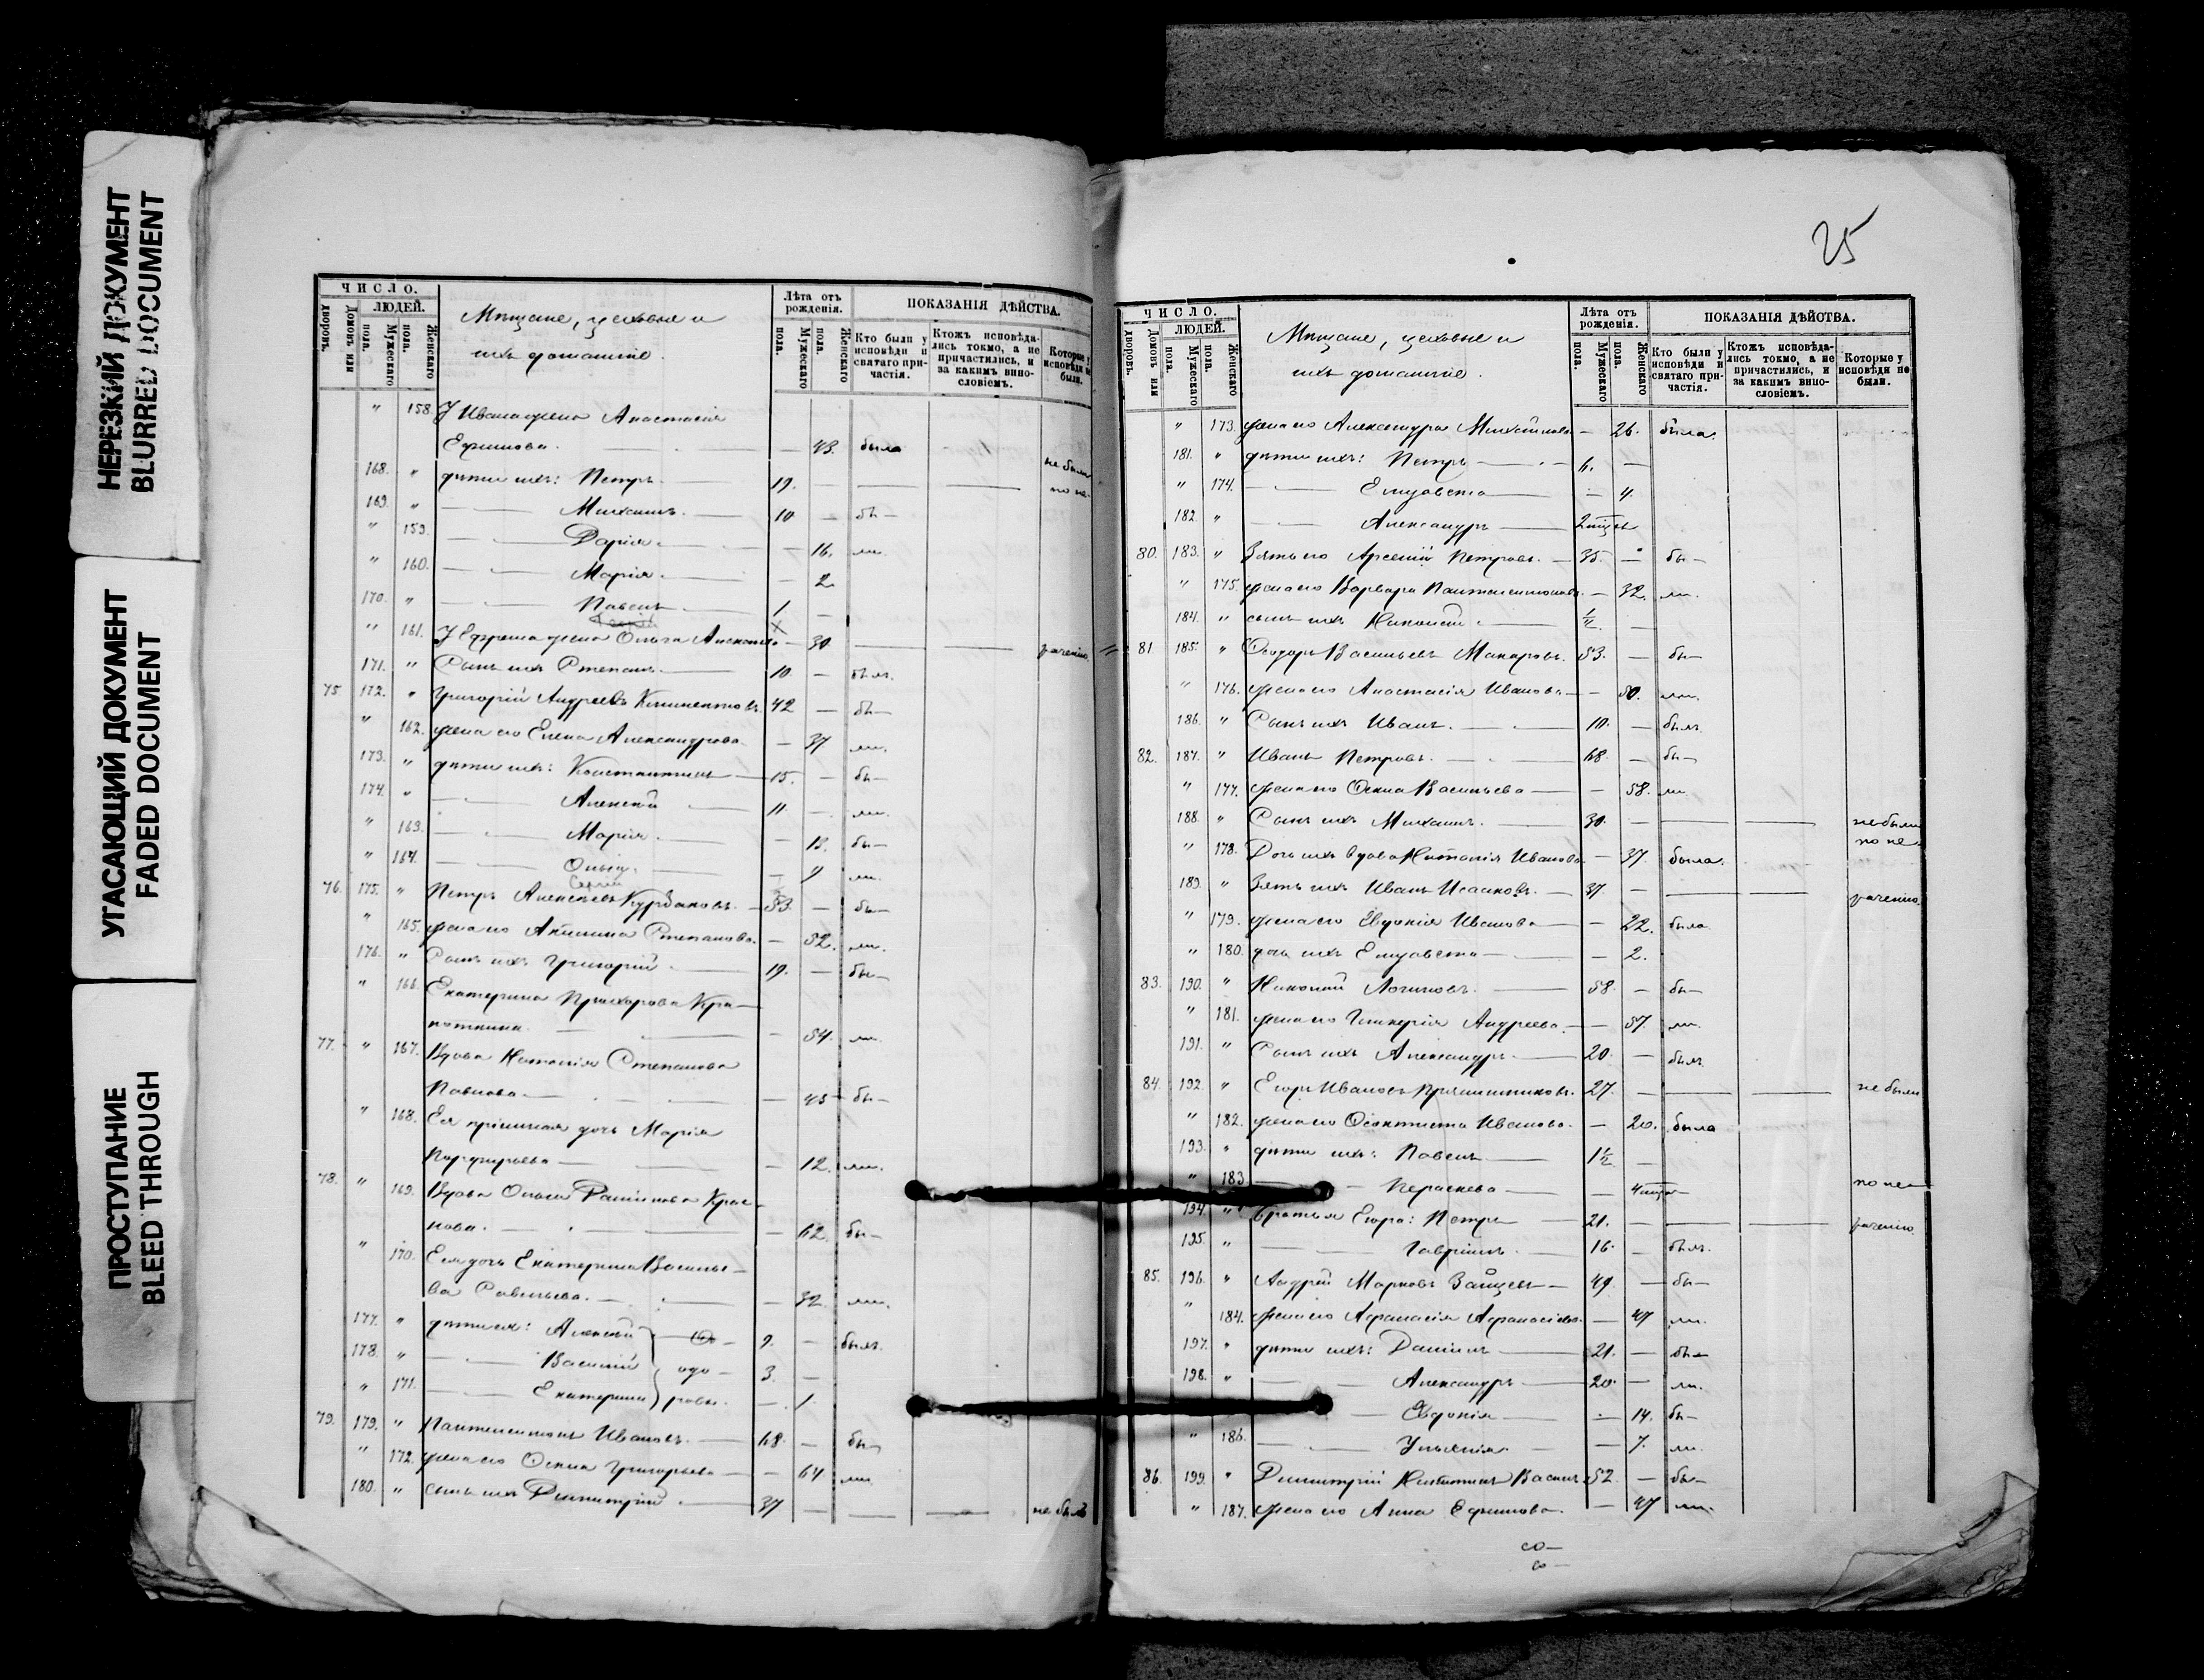 НЕРЕЗКИЙ ДОКУМЕНТ
BLURRED DOCUMENT
УГАСАЮЩИЙ ДОКУМЕНТ
FADED DOCUMENT
ПРОСТУПАНИЕ
BLEED THROUGH
ЧИСЛО.
ЛЮДЕЙ.
Домовъ или дворовъ.
Мужескаго пола.
Женскаго пола.
Мѣщане, цеховые и
ихъ домашніе.
Лѣта отъ рожденія.
Мужескаго пола.
Женскаго пола.
ПОКАЗАНІЯ ДѢЙСТВА.
Кто были у исповѣди и святаго причастія.
Ктожъ исповѣдались токмо, а не причастились, и за какимъ винословіемъ.
Которые у исповѣди не были.
" 158. У Ивана жена Анастасія
Ефимова. — 43. была
168. " дѣти ихъ: Петръ 19. — не были
169. " Михаилъ. 10 — бы— по не-
" 159. Дарія. — 16. ли.
" 160. Марія. — 2.
170. " Павелъ 1. —
" 161. У Ефрема жена Ольга Алексѣева — 30 раченію
171. " Сынъ ихъ Степанъ. 10. — былъ.
75. 172. " Григорій Андреевъ Климентовъ. 42 — бы—
" 162. жена его Елена Александрова — 37 ли.
173. " дѣти ихъ: Константинъ 15. — бы—
174. " Алексѣй 11 — ли.
" 163. Марія. — 13. бы—
" 164. Ольга. — 9 ли.
Сергій
76. 175. " Петръ Алексѣевъ Курбаковъ. 53. — бы—
" 165. жена его Акилина Степанова. — 52. ли.
176. " Сынъ ихъ Григорій. 19. — бы—
" 166. Екатерина Прохорова Кра-
поткина. — 54. ли.
77. " 167. Вдова Наталія Степанова
Павлова. — 45 бы—
" 168. Ея пріимная дочь Марія
Порфирьева — 12. ли.
78. " 169. Вдова Ольга Данилова Крас-
нова. — 62. бы—
" 170. Ея дочь Екатерина Василье-
ва Савельева. — 32. ли.
177. " дѣти ея: Алексѣй 9. — былъ.
178. " Василій 3. —
" 171. Екатерина — 1.
79. 179. " Пантелеимонъ Ивановъ. 68. — бы—
" 172. жена его Оекла Григорьева — 64 ли.
180. " сынъ ихъ Димитрій. 37 — не былъ
25
ЧИСЛО.
ЛЮДЕЙ.
Домовъ или дворовъ.
Мужескаго пола.
Женскаго пола.
Мѣщане, цеховые и
ихъ домашніе.
Лѣта отъ рожденія.
Мужескаго пола.
Женскаго пола.
ПОКАЗАНІЯ ДѢЙСТВА.
Кто были у исповѣди и святаго причастія.
Ктожъ исповѣдались токмо, а не причастились, и за какимъ винословіемъ.
Которые у исповѣди не были.
" 173. жена его Александра Михайлова — 26. была.
181. " дѣти ихъ: Петръ 6. —
" 174. Елизавета — 4.
182. " Александръ 2 мѣс.
80. 183. " Зять его Арсеній Петровъ. 35. — бы—
" 175. жена его Варвара Пантелеимонова — 32. ли.
184. " сынъ ихъ Николай ½ —
81. 185. " Ѳеодоръ Васильевъ Макаровъ. 53. — бы—
" 176. жена его Анастасія Иванова — 50. ли.
186. " Сынъ ихъ Иванъ. 10. — былъ.
82. 187. " Иванъ Петровъ. 68. — бы—
" 177. жена его Оекла Васильева — 58. ли.
188. " Сынъ ихъ Михаилъ. 30. — не были
" 178. Дочь ихъ вдова Наталія Иванова — 37. была. по не-
189. " Зять ихъ Иванъ Исааковъ. 37. — раченію.
" 179. жена его Евдокія Иванова — 22. была.
" 180. дочь ихъ Елизавета — 2.
83. 190. " Николай Логиновъ. 58. — бы—
" 181. жена его Гликерія Андреева. — 57. ли.
191. " Сынъ ихъ Александръ. 20. — былъ.
84. 192. " Егоръ Ивановъ Прянишниковъ. 27. — не были
" 182. жена его Ѳеоктиста Иванова. — 20. была
193. " дѣти ихъ: Павелъ 1½ —
" 183 Параскева — 4 мѣс. по не—
194. " братья Егора: Петръ 21. — раченію
195. " Гавріилъ. 16. — былъ.
85. 196. " Андрей Марковъ Зайцевъ 49. — бы—
" 184. жена его Афанасія Афанасіева. — 47 ли.
197. " дѣти ихъ: Даніилъ 21. — бы—
198. " Александръ 20. — ли.
Евдокія — 14. бы—
" 186. Ульянія. — 7. ли.
86. 199. " Димитрій Никитинъ 52. — бы—
" 187. жена его Анна Ефимова. — 47 ли.